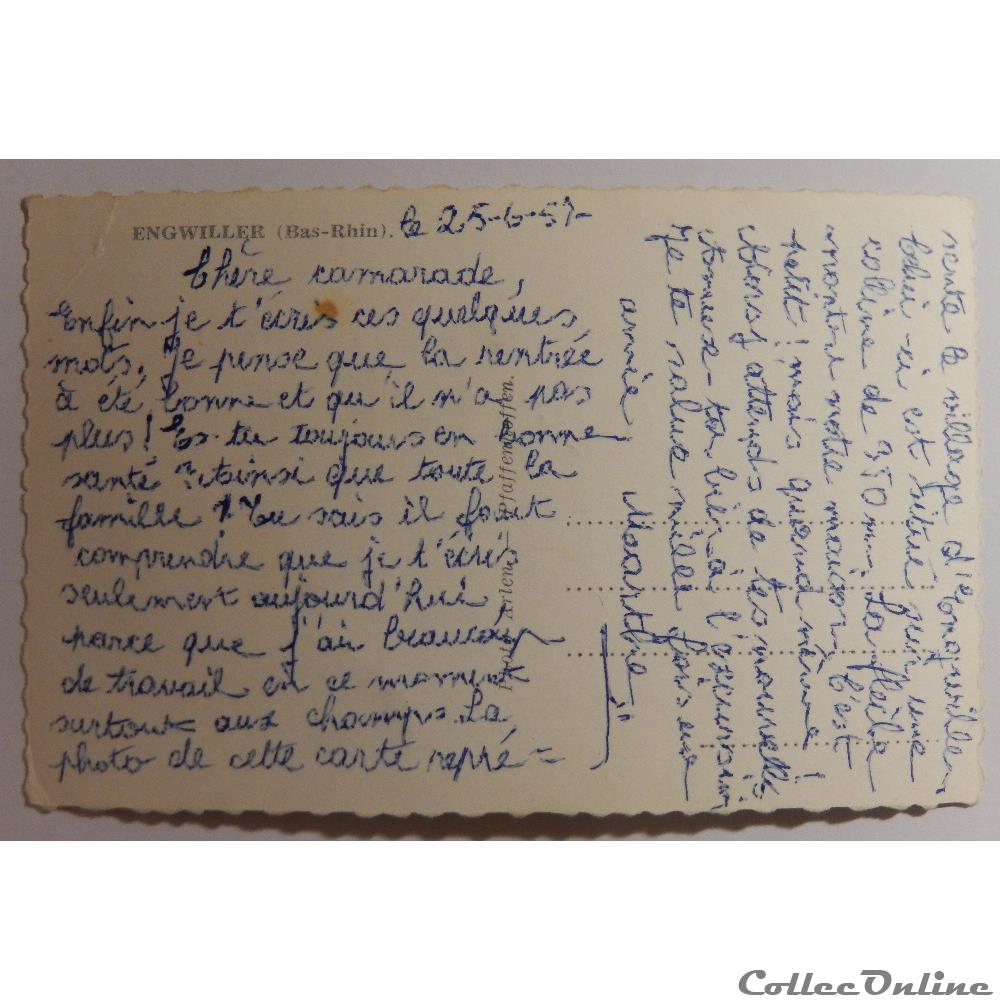 ENGWILLER (Bas-Rhin).
le 25-6-57-
Chère camarade,
Enfin je t'écris ces quelques
mots. Je pense que la rentrée
à été bonne et qu'il n'a pas
plus! Es-tu toujours en bonne
santé? Ainsi que toute la
famille? Tu sais il faut
comprendre que je t'écris
seulement aujourd'hui
parce que j'ai beaucoup
de travail en ce moment
surtout aux champs. La
photo de cette carte repré=
sente le village d'Engwiller,
Celui-ci est situé sur une
colline de 350 m. La flèche
montre notre maison! C'est
petit! mais quand même!
Alors j'attends de tes nouvelles
Amuse-toi bien à l'excursion
Je te salue mille fois une
amie Marthe
Photo Arlen — Pfaffenhoffen.
CollecOnline